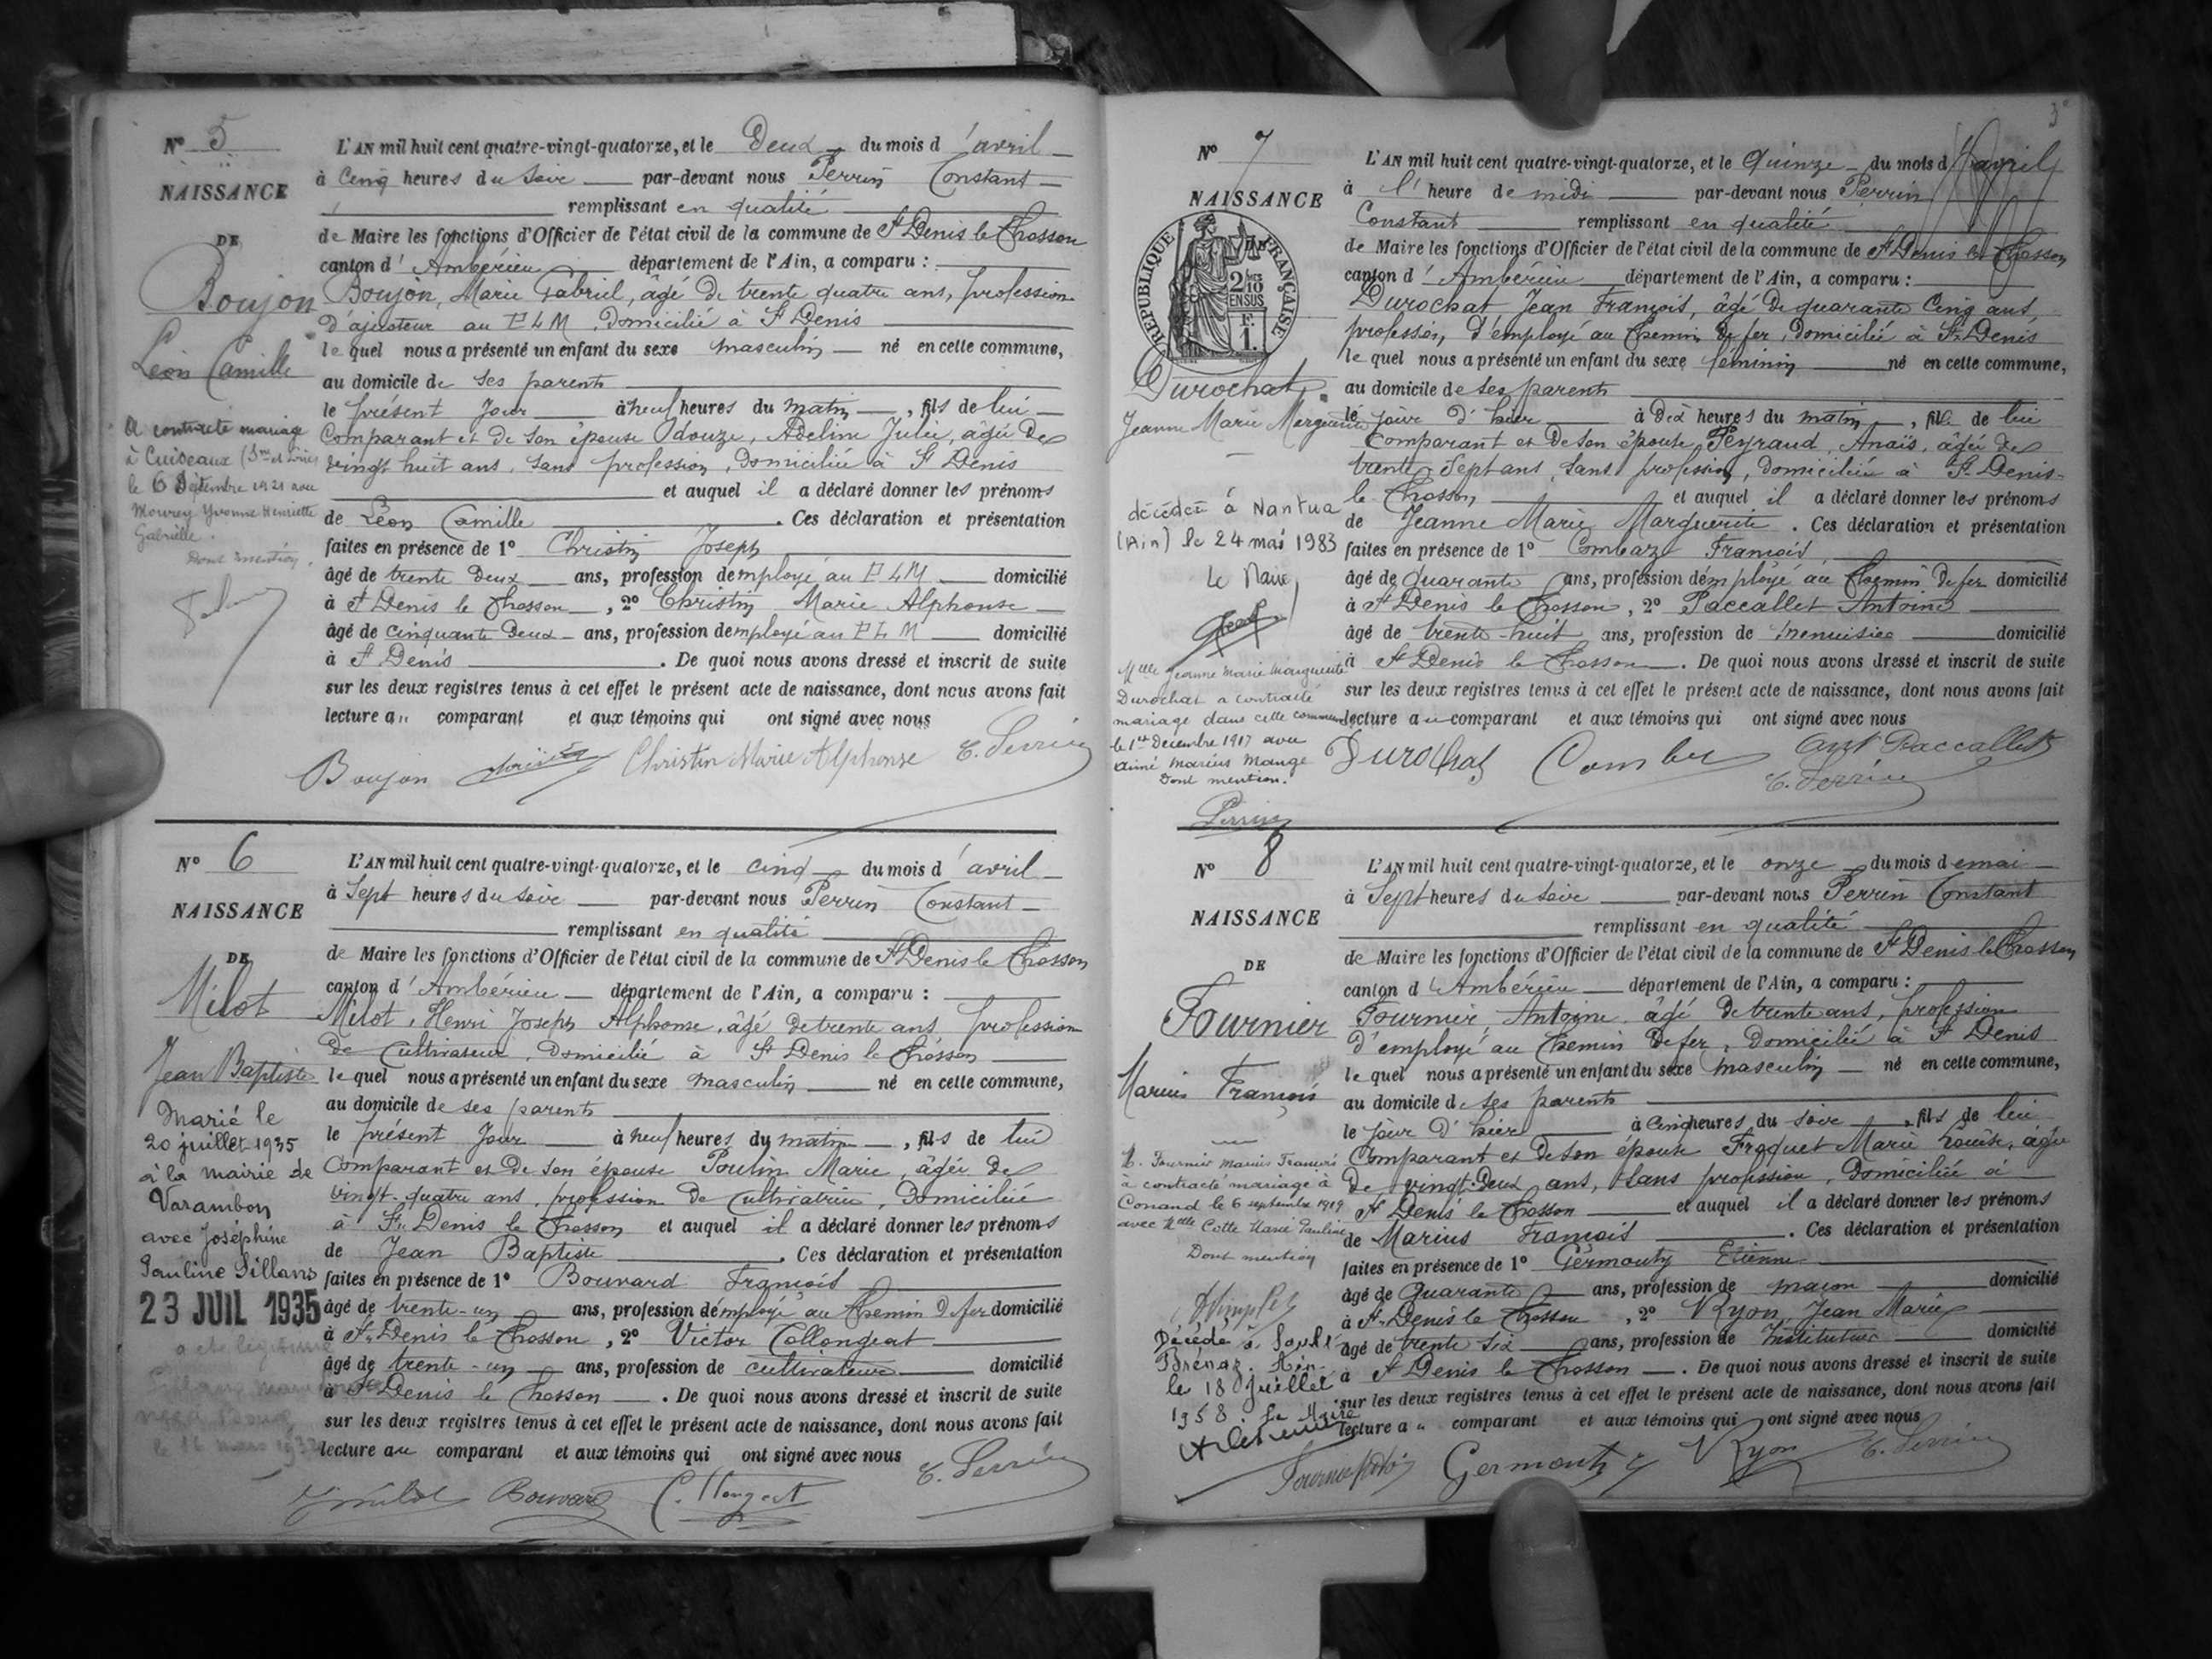 N° 5
NAISSANCE
DE
Boujon
Léon Camille
A contracté mariage
à Cuiseaux (S.ne et Loire)
le 6 Septembre 1921 avec
Mourey Yvonne Henriette
Gabrielle.
Dont mention.
L'AN mil huit cent quatre-vingt-quatorze, et le Deux du mois d'avril
à Cinq heures du Soir par-devant nous Perrin Constant
remplissant en qualité
de Maire les fonctions d'Officier de l'état civil de la commune de St Denis le Chosson
canton d'Ambérieu département de l'Ain, a comparu :
Boujon, Marie Gabriel, âgé de trente quatre ans, profession
d'ajusteur au P L M, domicilié à St Denis
lequel nous a présenté un enfant du sexe masculin né en cette commune,
au domicile de ses parents
le présent Jour à neuf heures du matin, fils de lui
Comparant et de son épouse Odouze, Adeline Julie, âgée de
vingt huit ans, sans profession, domiciliée à St Denis
et auquel il a déclaré donner les prénoms
de Léon Camille. Ces déclaration et présentation
faites en présence de 1° Christin Joseph
âgé de trente deux ans, profession d'employé au P L M domicilié
à St Denis le Chosson, 2° Christin Marie Alphonse
âgé de cinquante deux ans, profession d'employé au P L M domicilié
à St Denis. De quoi nous avons dressé et inscrit de suite
sur les deux registres tenus à cet effet le présent acte de naissance, dont nous avons fait
lecture au comparant et aux témoins qui ont signé avec nous
Boujon Christin Christin Marie Alphonse C. Perrin
N° 6
NAISSANCE
DE
Milot
Jean Baptiste
Marié le
20 juillet 1935
à la mairie de
Varambon
avec Joséphine
Pauline Sillans
23 JUIL 1935
L'AN mil huit cent quatre-vingt-quatorze, et le cinq du mois d'avril
à Sept heures du soir par-devant nous Perrin Constant
remplissant en qualité
de Maire les fonctions d'Officier de l'état civil de la commune de St Denis le Chosson
canton d'Ambérieu département de l'Ain, a comparu :
Milot, Henri Joseph Alphonse, âgé de trente ans profession
de Cultivateur, domicilié à St Denis le Chosson
lequel nous a présenté un enfant du sexe masculin né en cette commune,
au domicile de ses parents
le présent Jour à neuf heures du matin, fils de lui
Comparant et de son épouse Poulin Marie, âgée de
vingt-quatre ans, profession de Cultivatrice, domiciliée
à St Denis le Chosson et auquel il a déclaré donner les prénoms
de Jean Baptiste. Ces déclaration et présentation
faites en présence de 1° Bouvard François
âgé de trente-un ans, profession d'employé au Chemin de fer domicilié
à St Denis le Chosson, 2° Victor Collongeat
âgé de trente-un ans, profession de cultivateur domicilié
à St Denis le Chosson. De quoi nous avons dressé et inscrit de suite
sur les deux registres tenus à cet effet le présent acte de naissance, dont nous avons fait
lecture au comparant et aux témoins qui ont signé avec nous
Milot Bouvard Collongeat C. Perrin
3e
N° 7
NAISSANCE
DE
RÉPUBLIQUE FRANÇAISE
2/10 EN SUS
F. 1.
Durochat
Jeanne Marie Marguerite
décédée à Nantua
(Ain) le 24 mai 1983
Le Maire,
Melle Jeanne Marie Marguerite
Durochat a contracté
mariage dans cette commune
le 1er Décembre 1917 avec
Aimé Marius Mange
Dont mention.
Perrin
L'AN mil huit cent quatre-vingt-quatorze, et le Quinze du mois d'avril
à l'heure de midi par-devant nous Perrin
Constant remplissant en qualité
de Maire les fonctions d'Officier de l'état civil de la commune de St Denis le Chosson
canton d'Ambérieu département de l'Ain, a comparu :
Durochat Jean François, âgé de quarante Cinq ans,
profession, d'employé au Chemin de fer, domicilié à St Denis
lequel nous a présenté un enfant du sexe féminin né en cette commune,
au domicile de ses parents
le jour d'hier à dix heures du matin, fille de lui
comparant et de son épouse Peyraud, Anaïs, âgée de
trente-Sept ans, sans profession, domiciliée à St Denis-
le Chosson et auquel il a déclaré donner les prénoms
de Jeanne Marie Marguerite. Ces déclaration et présentation
faites en présence de 1° Combaz François
âgé de Quarante ans, profession d'employé au Chemin de fer domicilié
à St Denis le Chosson, 2° Paccallet Antoine
âgé de trente-huit ans, profession de menuisier domicilié
à St Denis le Chosson. De quoi nous avons dressé et inscrit de suite
sur les deux registres tenus à cet effet le présent acte de naissance, dont nous avons fait
lecture au comparant et aux témoins qui ont signé avec nous
Durochat Combaz Ant Paccallet
C. Perrin
N° 8
NAISSANCE
DE
Fournier
Marius François
M. Fournier Marius François
à contracté mariage à
Conand le 6 septembre 1919
avec Melle Cotte Marie Pauline
Dont mention
Décédé à
Brénaz. Ain
le 18 Juillet
1958 Le Maire
L'AN mil huit cent quatre-vingt-quatorze, et le onze du mois de mai
à Sept heures du soir par-devant nous Perrin Constant
remplissant en qualité
de Maire les fonctions d'Officier de l'état civil de la commune de St Denis le Chosson
canton d'Ambérieu département de l'Ain, a comparu :
Fournier Antoine, âgé de trente ans, profession
d'employé au Chemin de fer, domicilié à St Denis
lequel nous a présenté un enfant du sexe masculin né en cette commune,
au domicile de ses parents
le jour d'hier à cinq heures du soir, fils de lui
Comparant et de son épouse Froquet Marie Louise, âgée
de vingt-deux ans, sans profession, domiciliée à
St Denis le Chosson et auquel il a déclaré donner les prénoms
de Marius François. Ces déclaration et présentation
faites en présence de 1° Germonty Etienne
âgé de Quarante ans, profession de maçon domicilié
à St Denis le Chosson, 2° Ryon, Jean Marie
âgé de trente six ans, profession de Instituteur domicilié
à St Denis le Chosson. De quoi nous avons dressé et inscrit de suite
sur les deux registres tenus à cet effet le présent acte de naissance, dont nous avons fait
lecture au comparant et aux témoins qui ont signé avec nous
Fournier Germonty Ryon C. Perrin